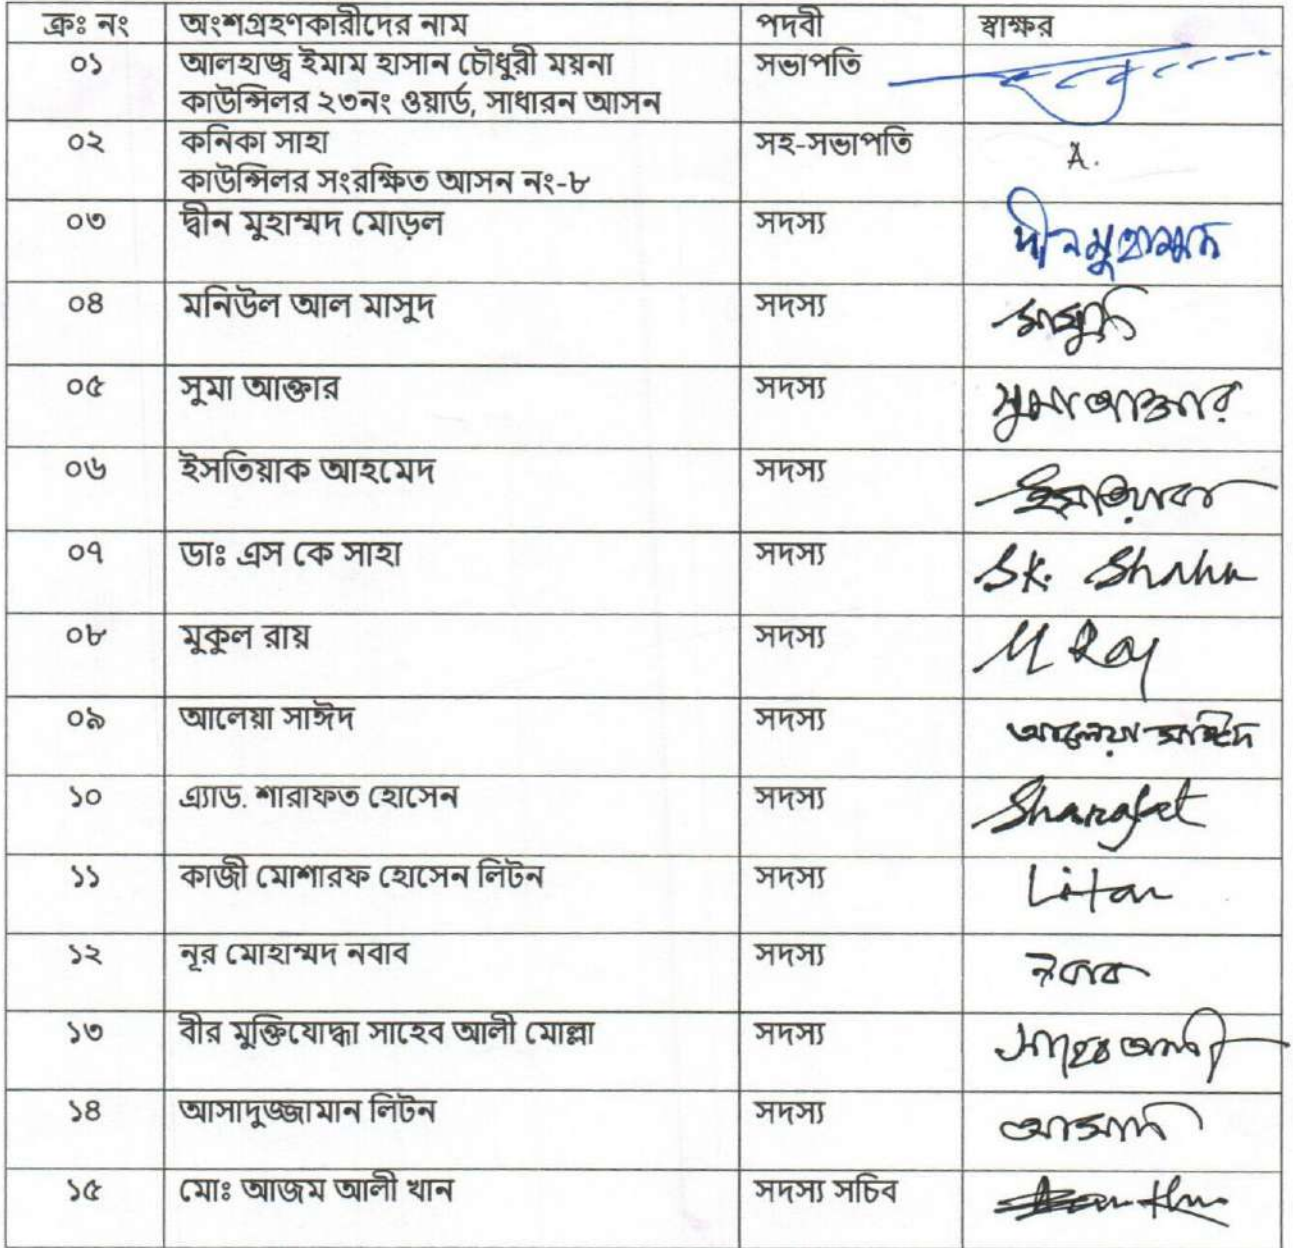 ক্রঃ নং অংশগ্রহণকারীদের নাম পদবী স্বাক্ষর
০১ আলহাজ্ব ইমাম হাসান চৌধুরী ময়না সভাপতি
কাউন্সিলর ২৩নং ওয়ার্ড, সাধারন আসন
০২ কনিকা সাহা সহ-সভাপতি A.
কাউন্সিলর সংরক্ষিত আসন নং-৮
০৩ দ্বীন মুহাম্মদ মোড়ল সদস্য দীন মুহাম্মদ
০৪ মনিউল আল মাসুদ সদস্য মাসুদ
০৫ সুমা আক্তার সদস্য সুমা আক্তার
০৬ ইসতিয়াক আহমেদ সদস্য ইসতিয়াক
০৭ ডাঃ এস কে সাহা সদস্য S.K. Shaha
০৮ মুকুল রায় সদস্য M Roy
০৯ আলেয়া সাঈদ সদস্য আলেয়া সাঈদ
১০ এ্যাড. শারাফত হোসেন সদস্য Sharafat
১১ কাজী মোশারফ হোসেন লিটন সদস্য Liton
১২ নূর মোহাম্মদ নবাব সদস্য নবাব
১৩ বীর মুক্তিযোদ্ধা সাহেব আলী মোল্লা সদস্য সাহেব আলী
১৪ আসাদুজ্জামান লিটন সদস্য আসাদ
১৫ মোঃ আজম আলী খান সদস্য সচিব